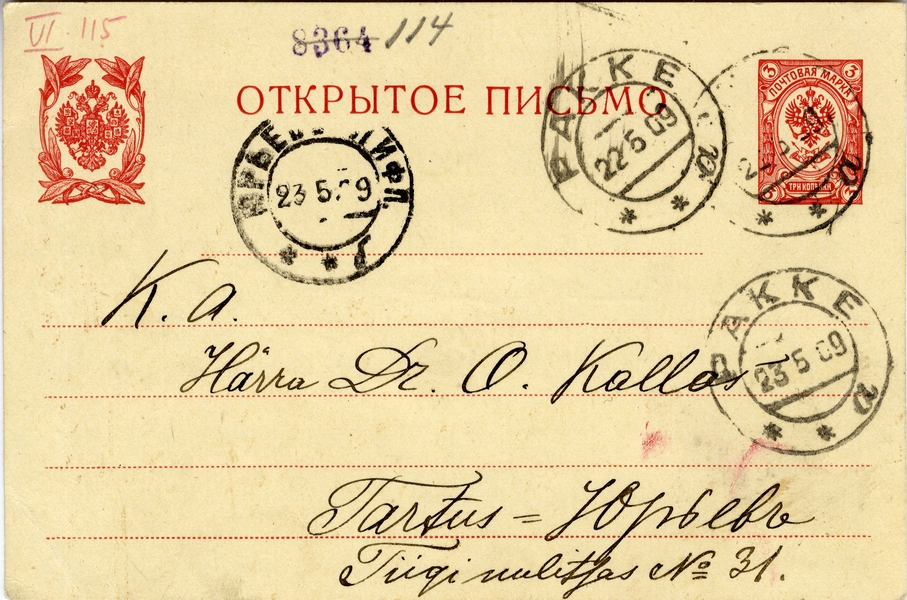 VI 115
8364 114
ОТКРЫТОЕ ПИСЬМО
ПОЧТОВАЯ МАРКА
3 3
ТРИ КОПѢЙКИ
РАККЕ
22 5 09
ЮРЬЕВЪ ЛИФЛ.
23 5 09
K. a.
Härra Dr. O. Kallas
РАККЕ
23 5 09
Tartus = Юрьевъ
Tiigi uulitsas № 31.